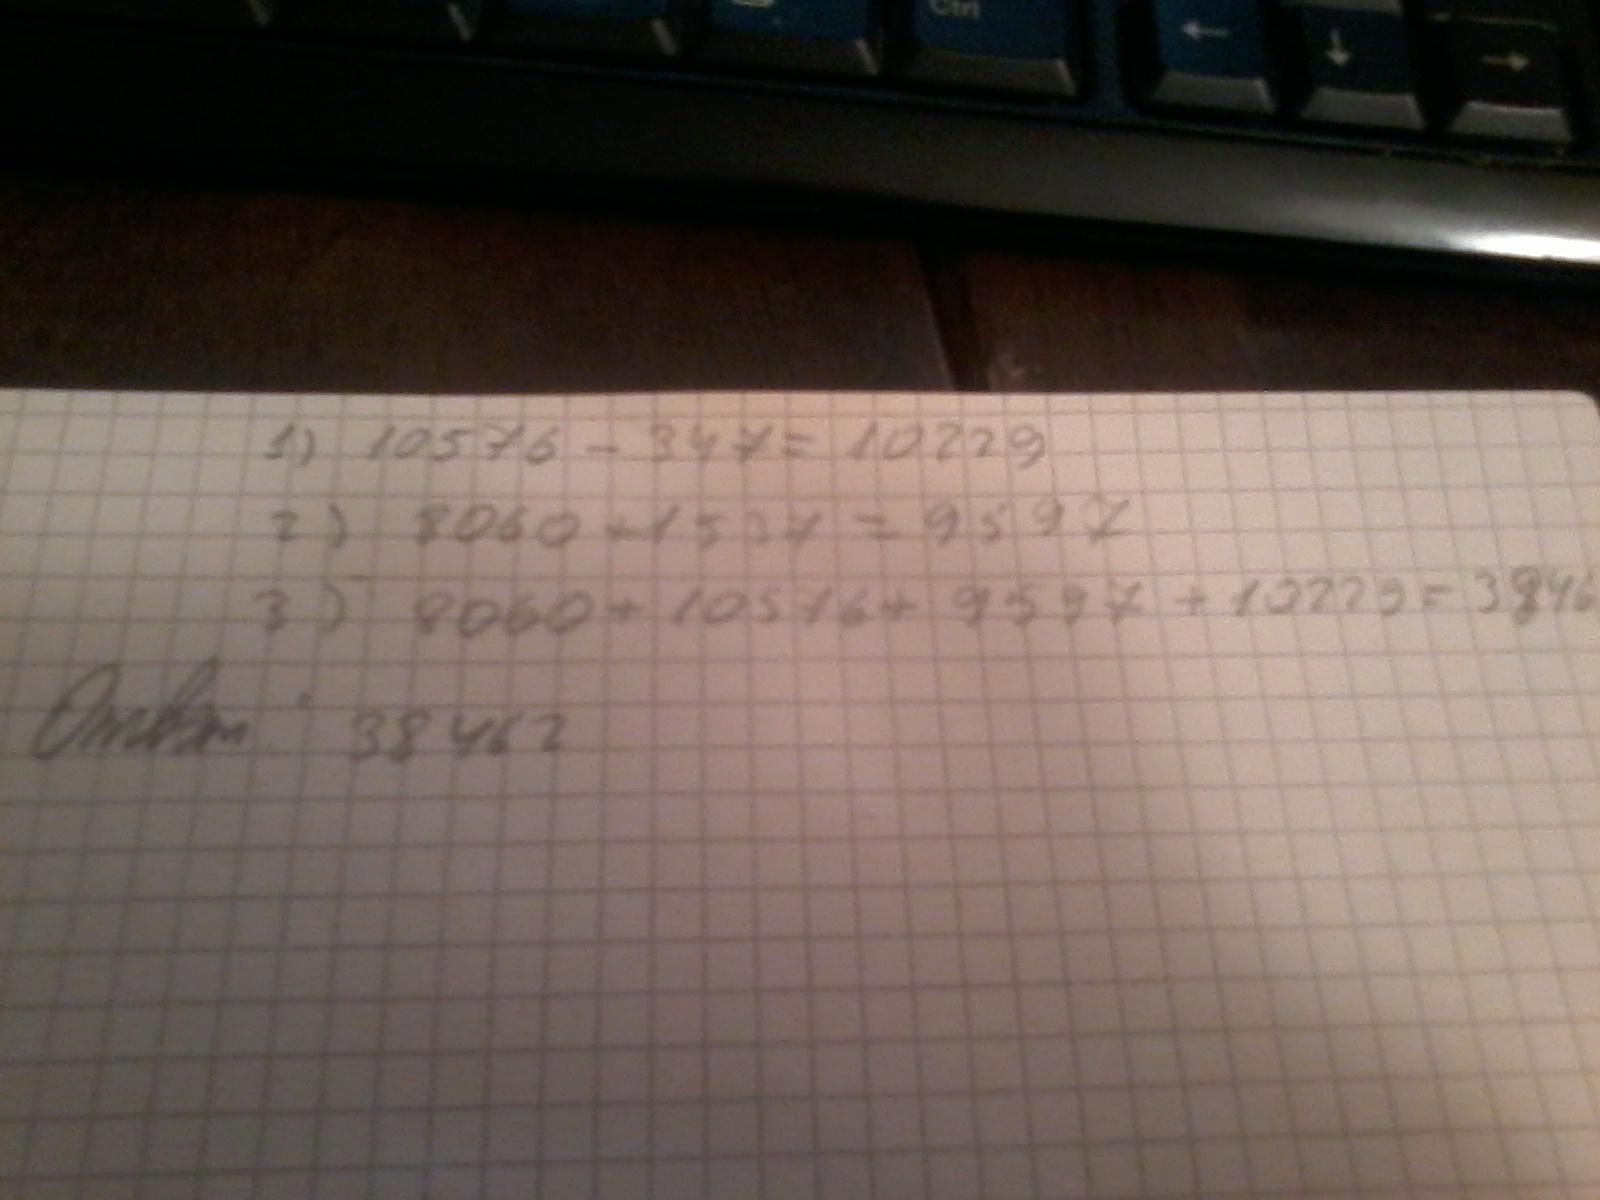 Ctrl
← ↓ →
1) 10576 - 347 = 10229
2) 8060 + 1537 = 9597
3) 8060 + 10576 + 9597 + 10229 = 3846
Ответ: 38462